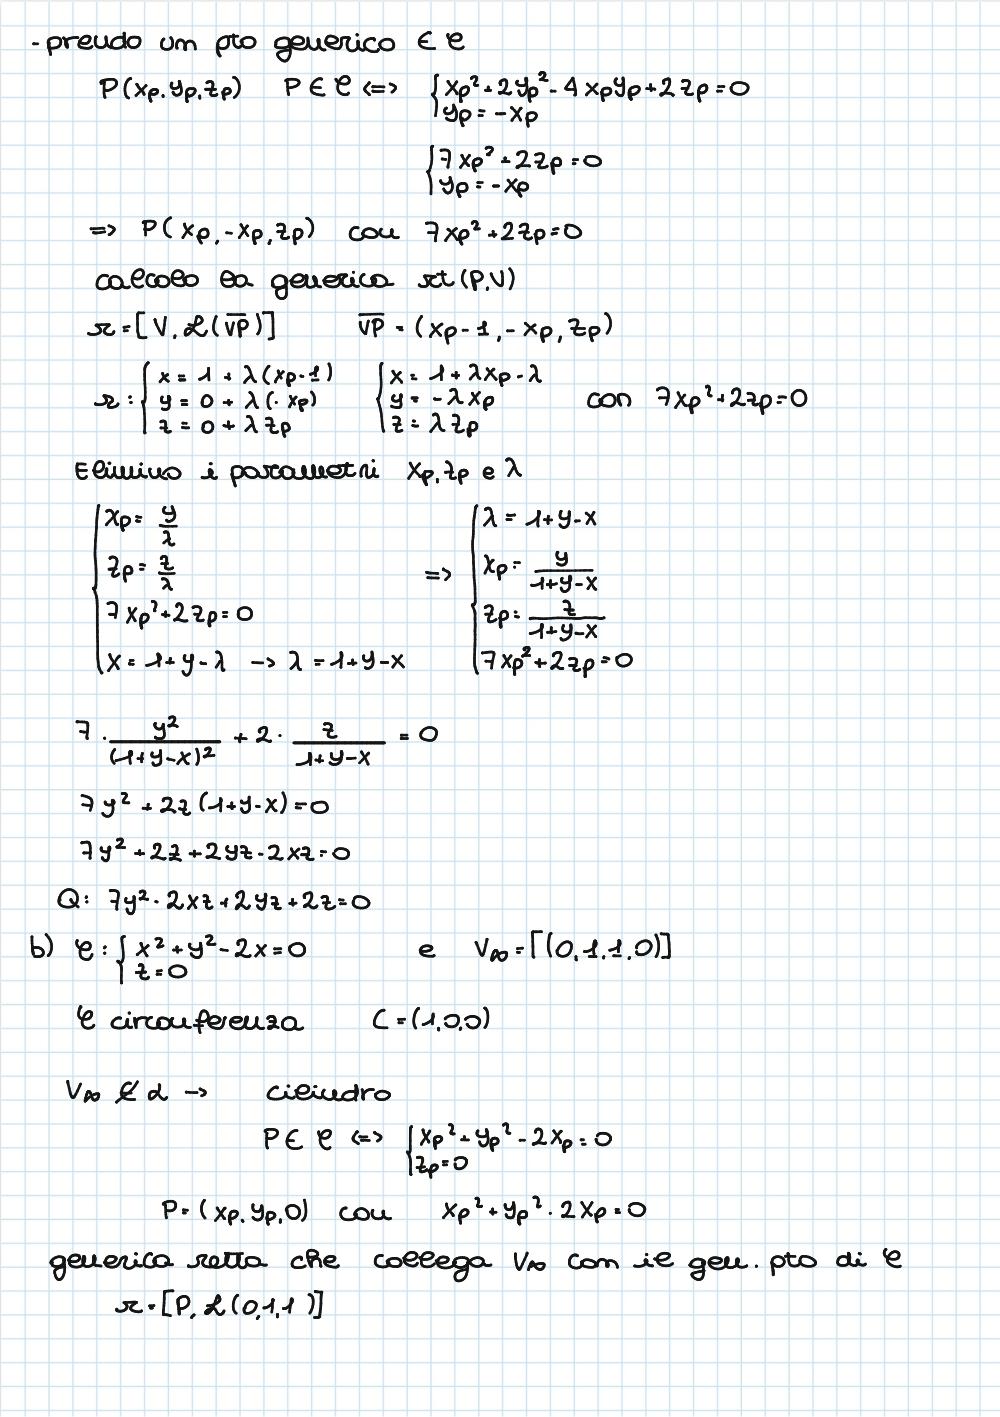 - prendo un pto generico ∈ C
P(xp, yp, zp) P ∈ C <=> { xp² + 2yp² - 4xpyp + 2zp = 0
yp = -xp
{ 7xp² + 2zp = 0
yp = -xp
=> P(xp, -xp, zp) con 7xp² + 2zp = 0
calcolo la generica rct(P,V)
r = [V, L(VP)] VP = (xp - 1, -xp, zp)
r: { x = 1 + λ(xp - 1) { x = 1 + λxp - λ
y = 0 + λ(-xp) y = -λxp con 7xp² + 2zp = 0
z = 0 + λzp z = λzp
Elimino i parametri xp, zp e λ
{ xp = y/λ { λ = 1 + y - x
zp = z/λ => xp = y/(1+y-x)
7xp² + 2zp = 0 zp = z/(1+y-x)
x = 1 + y - λ -> λ = 1 + y - x 7xp² + 2zp = 0
7 · y²/(1+y-x)² + 2 · z/(1+y-x) = 0
7y² + 2z(1+y-x) = 0
7y² + 2z + 2yz - 2xz = 0
Q: 7y² - 2xz + 2yz + 2z = 0
b) C: { x² + y² - 2x = 0 e V∞ = [(0,1,1,0)]
z = 0
C circonferenza C = (1,0,0)
V∞ ∉ α -> cilindro
P ∈ C <=> { xp² + yp² - 2xp = 0
zp = 0
P = (xp, yp, 0) con xp² + yp² - 2xp = 0
generica retta che collega V∞ con il gen. pto di C
r = [P, L(0,1,1)]